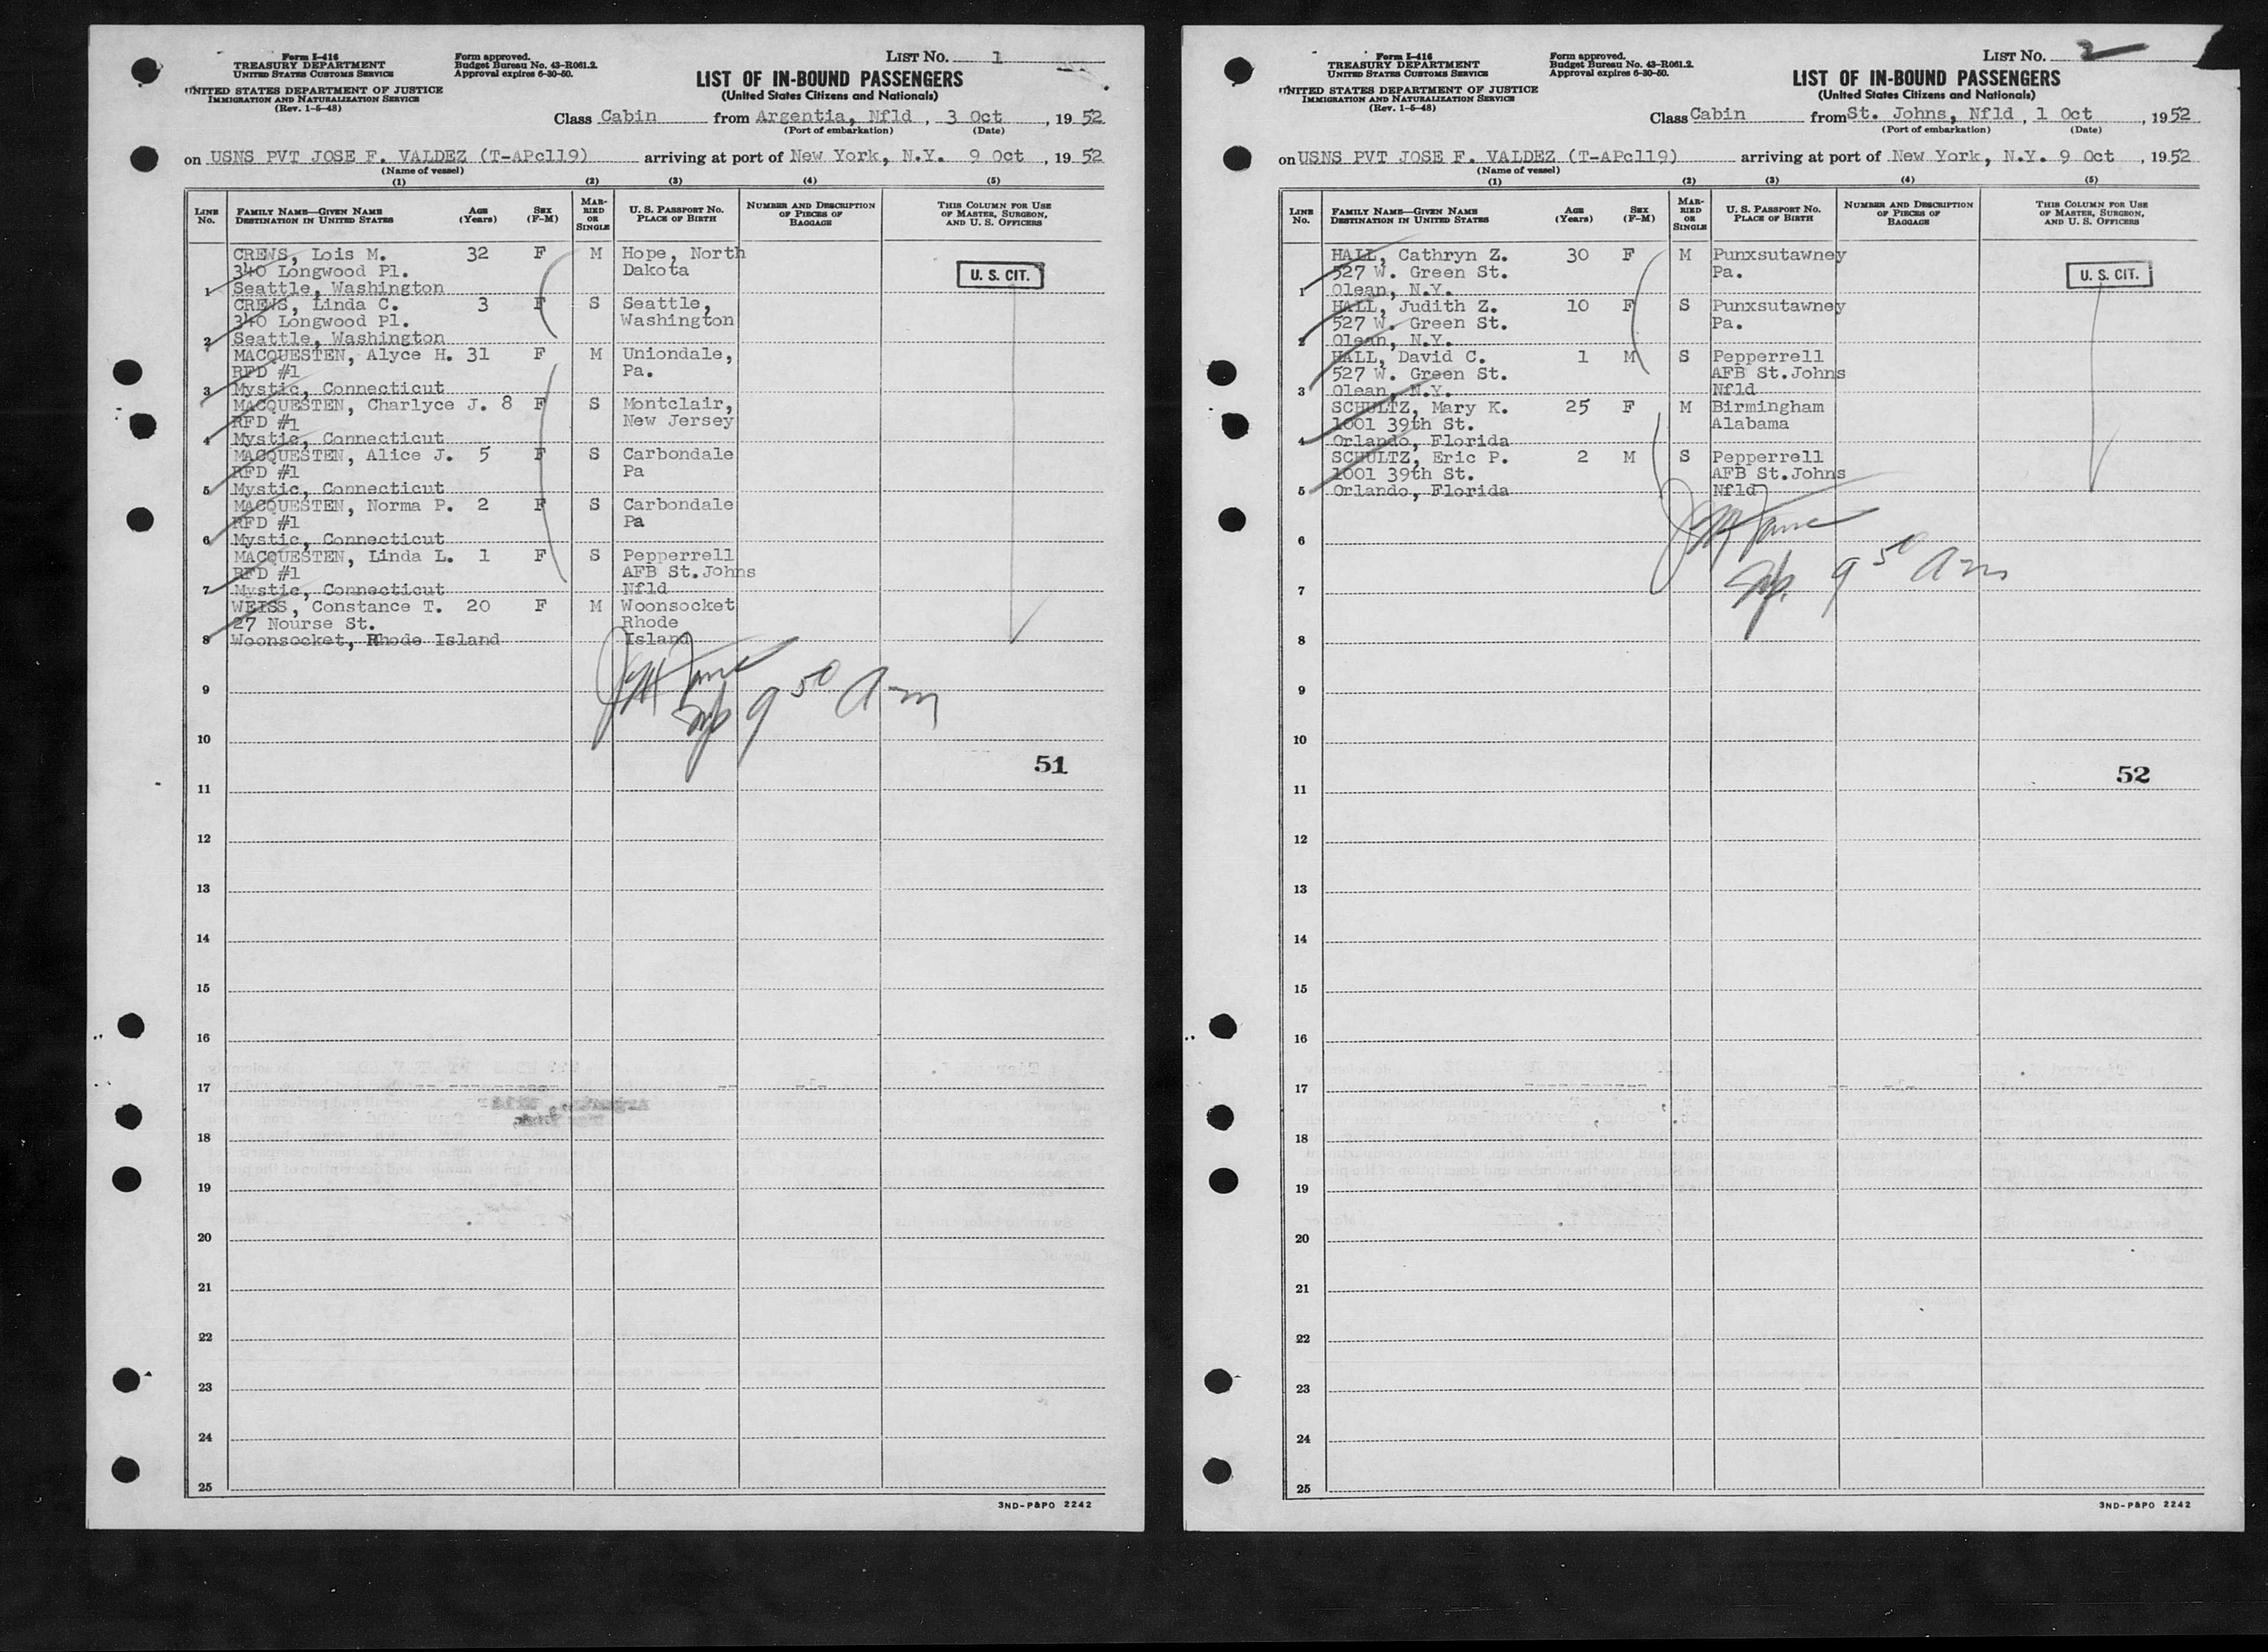 Form I-416
TREASURY DEPARTMENT
UNITED STATES CUSTOMS SERVICE
UNITED STATES DEPARTMENT OF JUSTICE
IMMIGRATION AND NATURALIZATION SERVICE
(Rev. 1-5-48)
Form approved.
Budget Bureau No. 43-R061.2.
Approval expires 6-30-50.
LIST No. 1
LIST OF IN-BOUND PASSENGERS
(United States Citizens and Nationals)
Class Cabin from Argentia, Nfld , 3 Oct , 19 52
(Port of embarkation) (Date)
on USNS PVT JOSE F. VALDEZ (T-APc119) arriving at port of New York, N.Y. 9 Oct , 19 52
(Name of vessel)
(1) (2) (3) (4) (5)
LINE No. FAMILY NAME—GIVEN NAME DESTINATION IN UNITED STATES AGE (Years) SEX (F-M) MARRIED OR SINGLE U. S. PASSPORT No. PLACE OF BIRTH NUMBER AND DESCRIPTION OF PIECES OF BAGGAGE THIS COLUMN FOR USE OF MASTER, SURGEON, AND U. S. OFFICERS
CREWS, Lois M. 32 F M Hope, North
340 Longwood Pl. Dakota U. S. CIT.
1 Seattle, Washington
CREWS, Linda C. 3 F S Seattle,
340 Longwood Pl. Washington
2 Seattle, Washington
MACQUESTEN, Alyce H. 31 F M Uniondale,
RFD #1 Pa.
3 Mystic, Connecticut
MACQUESTEN, Charlyce J. 8 F S Montclair,
RFD #1 New Jersey
4 Mystic, Connecticut
MACQUESTEN, Alice J. 5 F S Carbondale
RFD #1 Pa
5 Mystic, Connecticut
MACQUESTEN, Norma P. 2 F S Carbondale
RFD #1 Pa
6 Mystic, Connecticut
MACQUESTEN, Linda L. 1 F S Pepperrell
RFD #1 AFB St.Johns
7 Mystic, Connecticut Nfld
WEISS, Constance T. 20 F M Woonsocket
27 Nourse St. Rhode
8 Woonsocket, Rhode Island Island
9
9 50 Am
10
51
11
12
13
14
15
16
17
18
19
20
21
22
23
24
25
3ND-P&PO 2242
Form I-416
TREASURY DEPARTMENT
UNITED STATES CUSTOMS SERVICE
UNITED STATES DEPARTMENT OF JUSTICE
IMMIGRATION AND NATURALIZATION SERVICE
(Rev. 1-5-48)
Form approved.
Budget Bureau No. 43-R061.2.
Approval expires 6-30-50.
LIST No. 2
LIST OF IN-BOUND PASSENGERS
(United States Citizens and Nationals)
Class Cabin from St. Johns, Nfld , 1 Oct , 19 52
(Port of embarkation) (Date)
on USNS PVT JOSE F. VALDEZ (T-APc119) arriving at port of New York, N.Y. 9 Oct , 19 52
(Name of vessel)
(1) (2) (3) (4) (5)
LINE No. FAMILY NAME—GIVEN NAME DESTINATION IN UNITED STATES AGE (Years) SEX (F-M) MARRIED OR SINGLE U. S. PASSPORT No. PLACE OF BIRTH NUMBER AND DESCRIPTION OF PIECES OF BAGGAGE THIS COLUMN FOR USE OF MASTER, SURGEON, AND U. S. OFFICERS
HALL, Cathryn Z. 30 F M Punxsutawney
527 W. Green St. Pa. U. S. CIT.
1 Olean, N.Y.
HALL, Judith Z. 10 F S Punxsutawney
527 W. Green St. Pa.
2 Olean, N.Y.
HALL, David C. 1 M S Pepperrell
527 W. Green St. AFB St.Johns
3 Olean, N.Y. Nfld
SCHULTZ, Mary K. 25 F M Birmingham
1001 39th St. Alabama
4 Orlando, Florida
SCHULTZ, Eric P. 2 M S Pepperrell
1001 39th St. AFB St.Johns
5 Orlando, Florida Nfld
6
9 50 Am
7
8
9
10
52
11
12
13
14
15
16
17
18
19
20
21
22
23
24
25
3ND-P&PO 2242